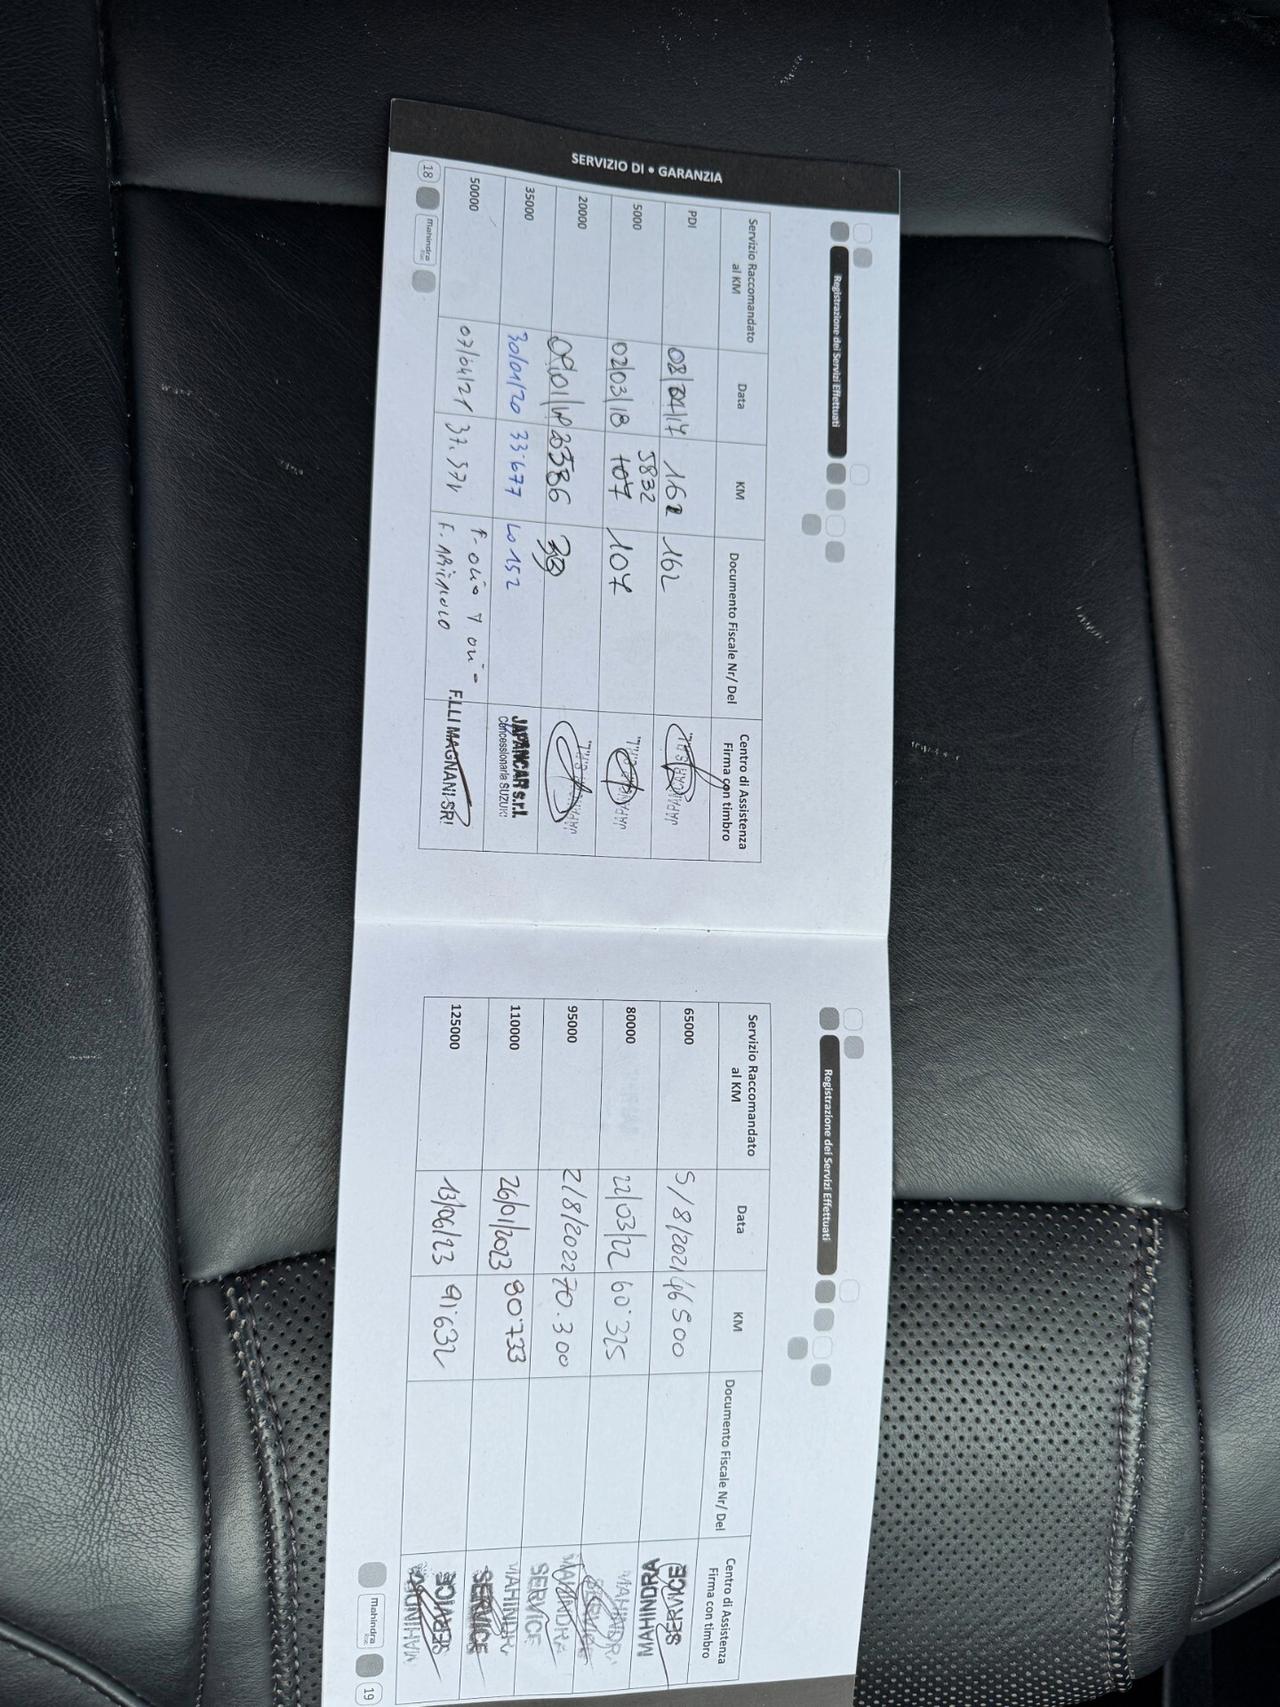 SERVIZIO DI • GARANZIA
Registrazione dei Servizi Effettuati
Servizio Raccomandato al KM Data KM Documento Fiscale Nr/ Del Centro di Assistenza Firma con timbro
PDI 162 162 JAPANCAR S.R.L.
5832
5000 02/03/18 107 107 JAPANCAR S.R.L.
20000 JAPANCAR S.R.L.
35000 30/01/20 33.677 40152 JAPANCAR s.r.l.
Concessionaria SUZUKI
F. olio
50000 07/04/21 F. F.LLI MAGNANI SRl
18 Mahindra
Registrazione dei Servizi Effettuati
Servizio Raccomandato al KM Data KM Documento Fiscale Nr/ Del Centro di Assistenza Firma con timbro
65000 5/8/2021 46500 MAHINDRA SERVICE
80000 22/03/22 60.325 MAHINDRA SERVICE
95000 2/8/2022 70.300 MAHINDRA SERVICE
110000 26/01/2023 80.733 MAHINDRA SERVICE
125000 13/06/23 91.632 MAHINDRA SERVICE
Mahindra 19